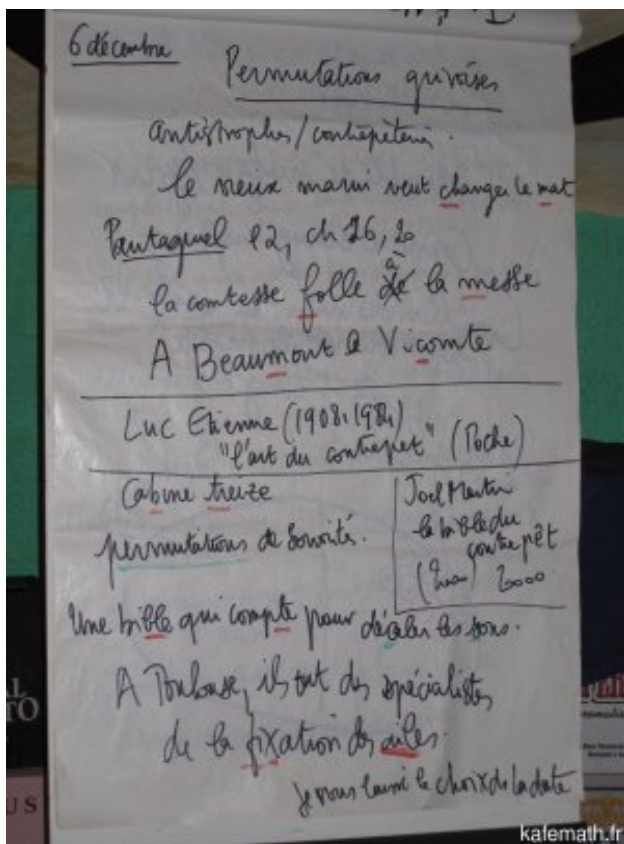 6 décembre
Permutations grivoises
antistrophe/contrepèterie.
le vieux marin veut changer le mat
Pantagruel l2, ch 16, 20
à
la comtesse folle de la messe
A Beaumont le Vicomte
Luc Etienne (1908, 1984)
"l'art du contrepet" (Poche)
Cabine treize
permutations de sonorités.
Joel Martin
la bible du
contrepêt
2000
Une bible qui compte pour décaler les sons.
A Toulouse, ils ont des spécialistes
de la fixation des ailes.
Je vous laisse le choix de la date
TO
US
kafemath.fr